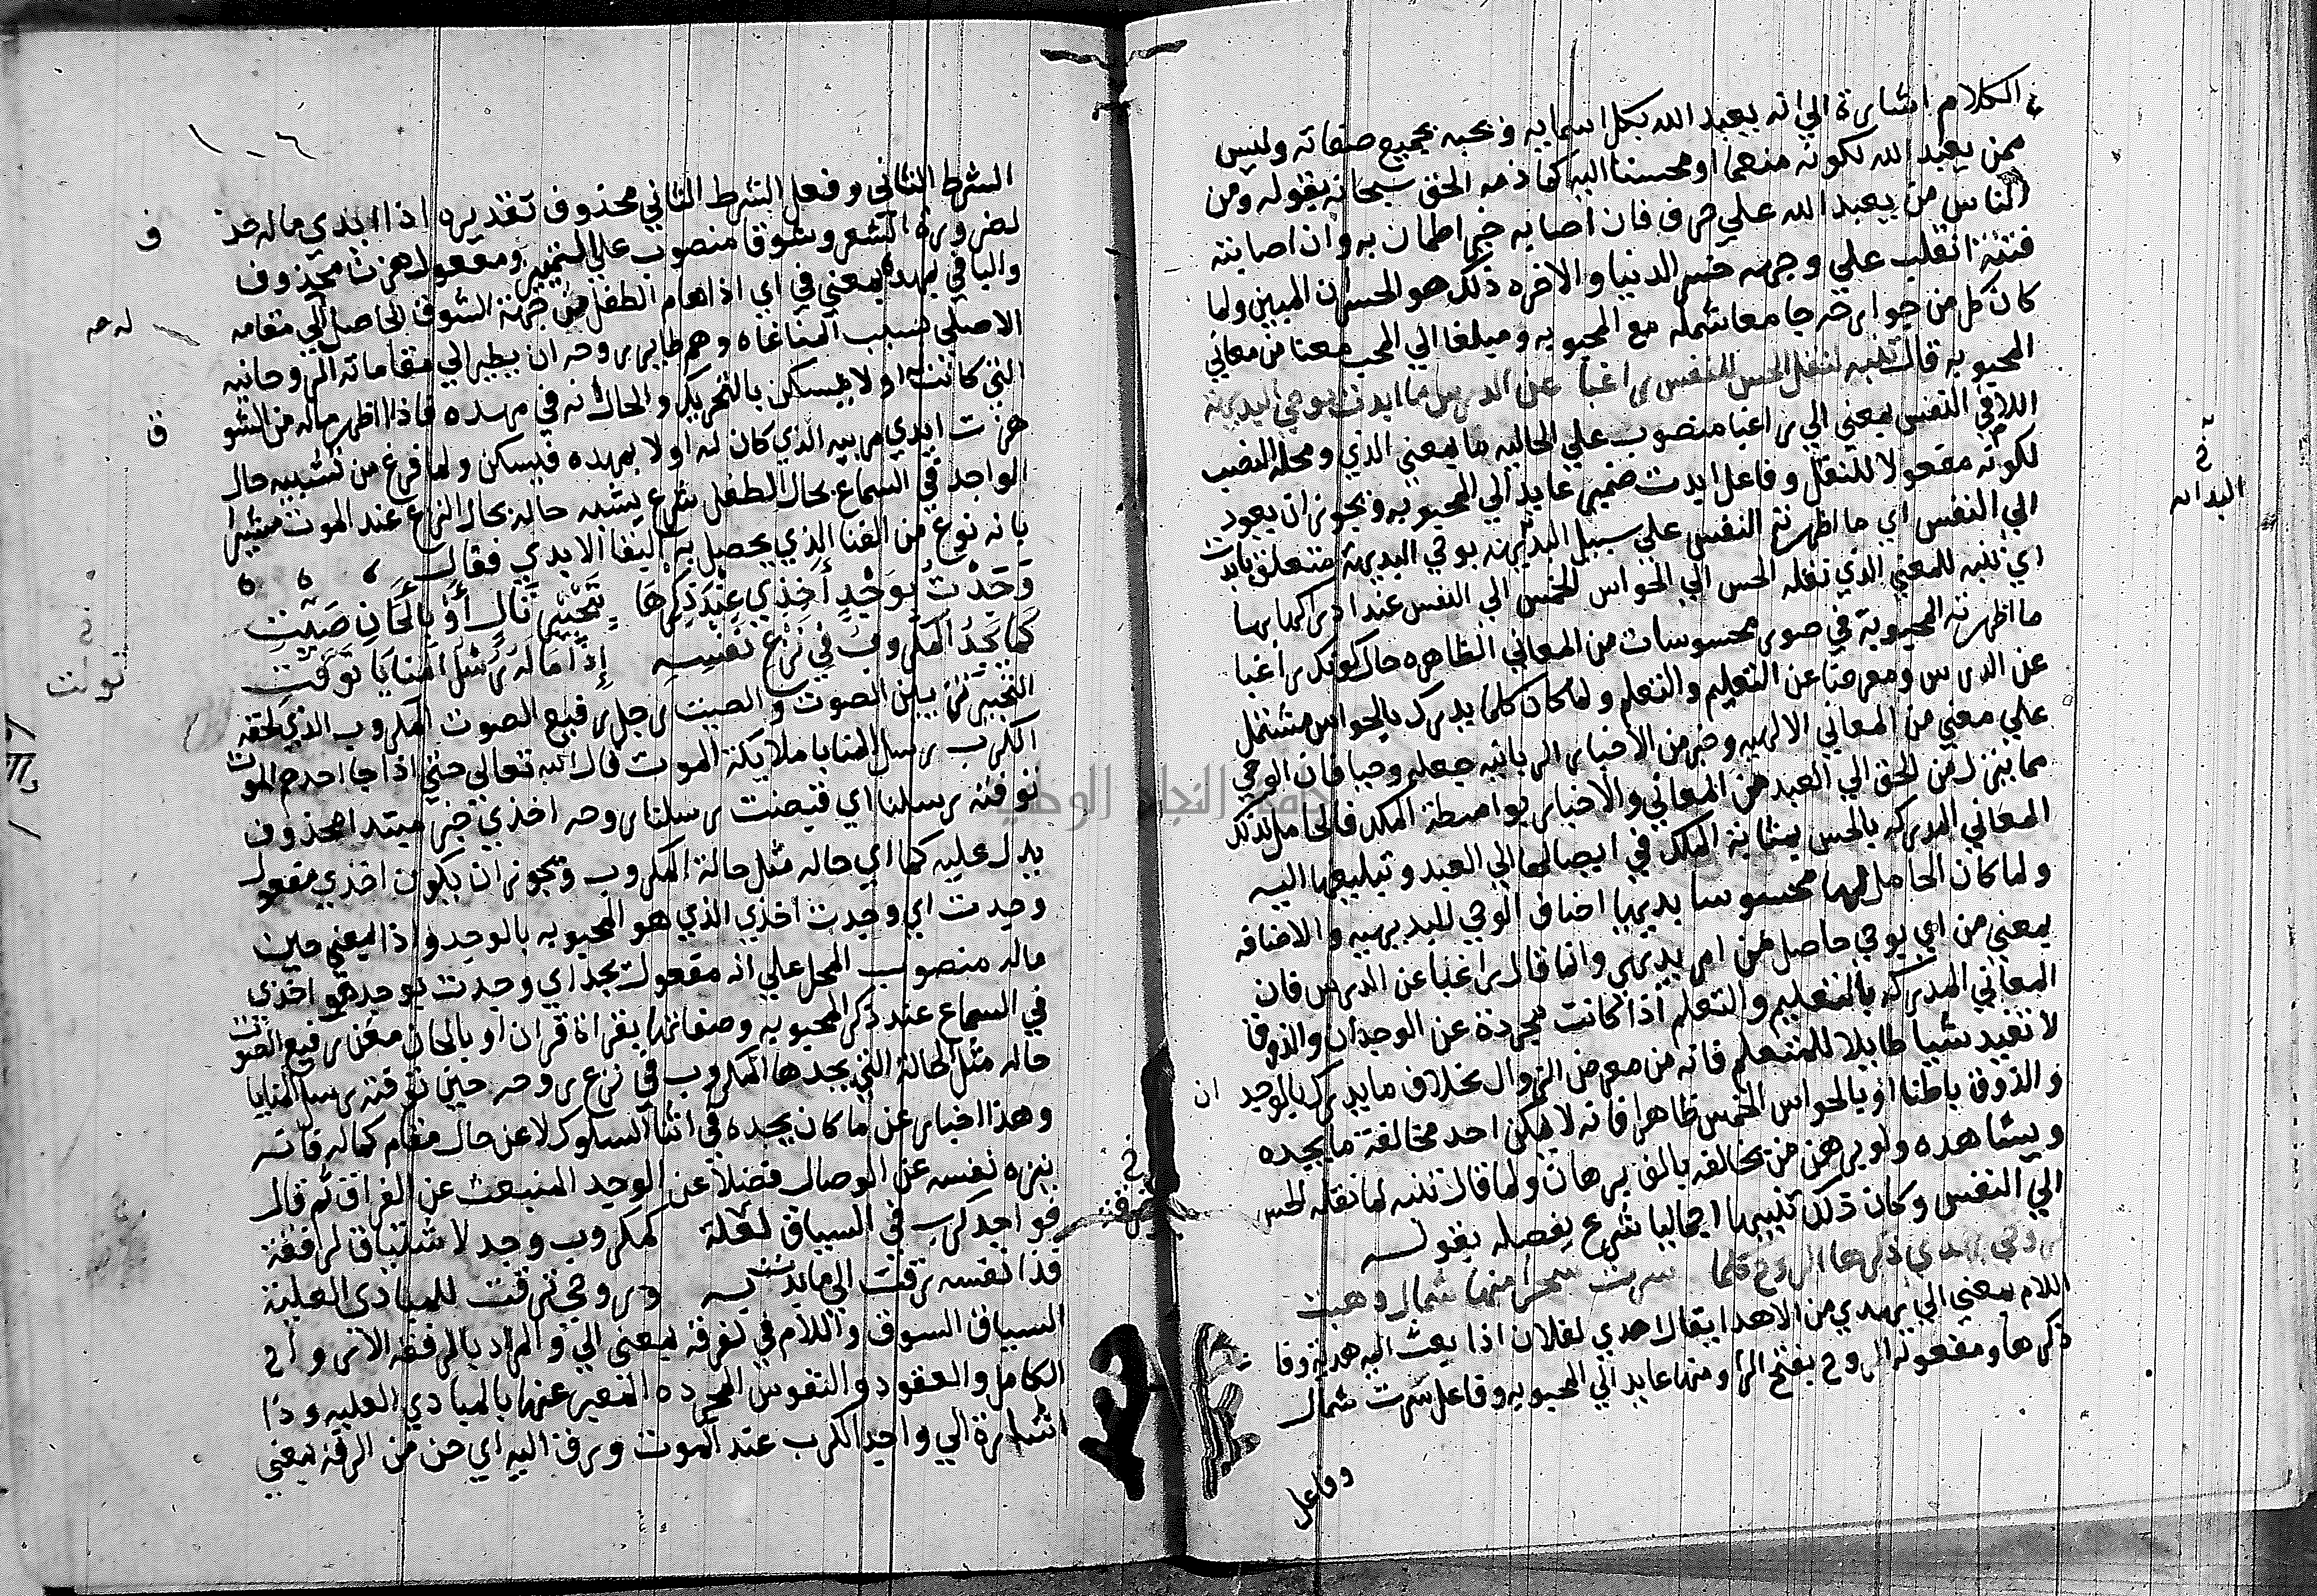 في الكلام اشارة الي انه يعبد الله بكل اسمايه ويحبه بجميع صفاته وليس
ممن يعبد الله لكونه منعما او محسنا اليه كما ذمه الحق سبحانه بقوله ومن
الناس من يعبد الله علي حرف فان اصابه خير اطمان به وان اصابته
فتنة انقلب علي وجهه خسر الدنيا والاخره ذلك هو الخسران المبين ولما
كان كل من جوارحه جامعا شمله مع المحبوبه ومبلغا الي المحب معنا من معاني
المحبوبه قال تنبه لنقل الحس للنفس راغبا عن الدرس ما ابدت بوحي البديهة
اللام في النفس بمعني الي راغبا منصوب علي الحاليه ما بمعني الذي ومحله النصب
لكونه مفعولا للنقل وفاعل ابدت ضمير عايد الي المحبوبه ويجوز ان يعود
الي النفس اي ما اظهرته النفس علي سبيل البديهه بوحي البديهة متعلق بابدت
اي تنبه للمعني الذي نقله الحس اي الحواس الخمس الي النفس عند ادراكها بها
ما اظهرته المحبوبة في صور محسوسات من المعاني الظاهره حال كونك راغبا
عن الدرس ومعرضا عن التعليم والتعلم ولما كان كلما يدرك بالحواس مشتمل
علي معني من المعاني الالهيه وخبر من الاخبار الربانيه جعله وحيا فان الوحي
مما ينزل من الحق الي العبد من المعاني والاخبار بواسطة الملك فالحامل لذلك
المعاني المدركه بالحس بمثابة الملك في ايصالها الي العبد وتبليغها اليه
ولما كان الحامل لها محسوسا بديهيا اضاف الوحي للبديهيه والاضافه
بمعني من اي بوحي حاصل من امر بديهي وانما قال راغبا عن الدرس فان
المعاني المدركه بالتعليم والتعلم اذا كانت مجردة عن الوجدان والذوق
لا تفيد شيا طايلا للمتعلم فانه من معرض الزوال بخلاف ما يدرك بالوجدان
والذوق باطنا او بالحواس الخمس ظاهرا فانه لا يمكن احد مخالفة ما يجده
ويشاهده ولو برهن من يخالفه بالف برهان ولما قال تنبه لما نقله الحس
الي النفس وكان ذلك تنبيها اجماليا شرع يفصله بقوله
لروحي يهدي ذكرها الروح كلما سرت سحرا منها شمال وهبت
اللام بمعني الي يهدي من الاهدا يقال اهدي لفلان اذا بعث اليه هدية وفاعل
ذكرها ومفعوله الروح بفتح الرا ومنها عايد الي المحبوبه وفاعل سرت شمال
وفاعل
البداه
١٠٦
الشرط الثاني وفعل الشرط الثاني محذوف تقديره اذا ابدي ماله حذف
لضرورة الشعر وشوقا منصوب علي التمييز ومفعول هزت محذوف
والبا في بمهده بمعني في اي اذا هام الطفل من جهة الشوق الحاصل الي مقامه
الاصلي بسبب المناغاه وهم طاير روحه ان يطير الي مقاماته الروحانيه
التي كانت له اولا يسكن بالتحريك والحال انه في مهده فاذا اظهر ماله من الشوق
هزت ايدي مربيه الذي كان له اولا بمهده فيسكن ولما فرغ من تشبيه حال
الواجد في السماع بحال الطفل شرع يشبه حاله بحال النزع عند الموت مشيرا
بانه نوع من الفنا الذي يحصل به البقا الابدي فقال
وَجَدْتُ بِوَجْدٍ أَخِذِي عِنْدَ ذِكْرِهَا بِتَحْبِيرِ تَالٍ أَوْ بِأَلْحَانِ صَيِّتِ
كَمَا يَجِدُ الْمَكْرُوبُ فِي نَزْعِ نَفْسِهِ إِذَا مَا لَهُ رُسْلُ الْمَنَايَا تَوَفَّتِ
التحبير تزيين الصوت والصيت رجل رفيع الصوت المكروب الذي لحقه
الكرب رسل المنايا ملايكة الموت قال الله تعالى حتي اذا جا احدهم الموت
توفته رسلنا اي قبضت رسلنا روحه اخذي خبر مبتدا محذوف
يدل عليه كما اي حاله مثل حالة المكروب ويجوز ان يكون اخذي مفعول
وجدت اي وجدت اخذي الذي هو المحبوبه بالوجد واذا بمعني حين
ماله منصوب المحل علي انه مفعول يجد اي وجدت بوجد هو اخذي
في السماع عند ذكر المحبوبه وصفاتها بقراة قران او بالحان مغن رفيع الصوت
حاله مثل الحالة التي يجدها المكروب في نزع روحه حين توفته رسل المنايا
وهذا اخبار عن ما كان يجده في اثنا السلوك لا عن حال مقام كماله فانه
ينزه نفسه عن الوصال فضلا عن الوجد المنبعث عن الفراق ثم قال
فواجد كرب في السياق لفرقة كمكروب وجد لاشتياق لرفقة
فذا نفسه رقت الي ما بدت به وروحي ترقت للمبادي العلية
السياق السوق واللام في لفرقة بمعنى الي والمراد بالرفقة الارواح
الكامل والعقود والنفوس المجرده المعبر عنها بالمبادي العليه وذا
اشارة الي واجد الكرب عند الموت ورق اليه اي حن من الرقة بمعني
تولت